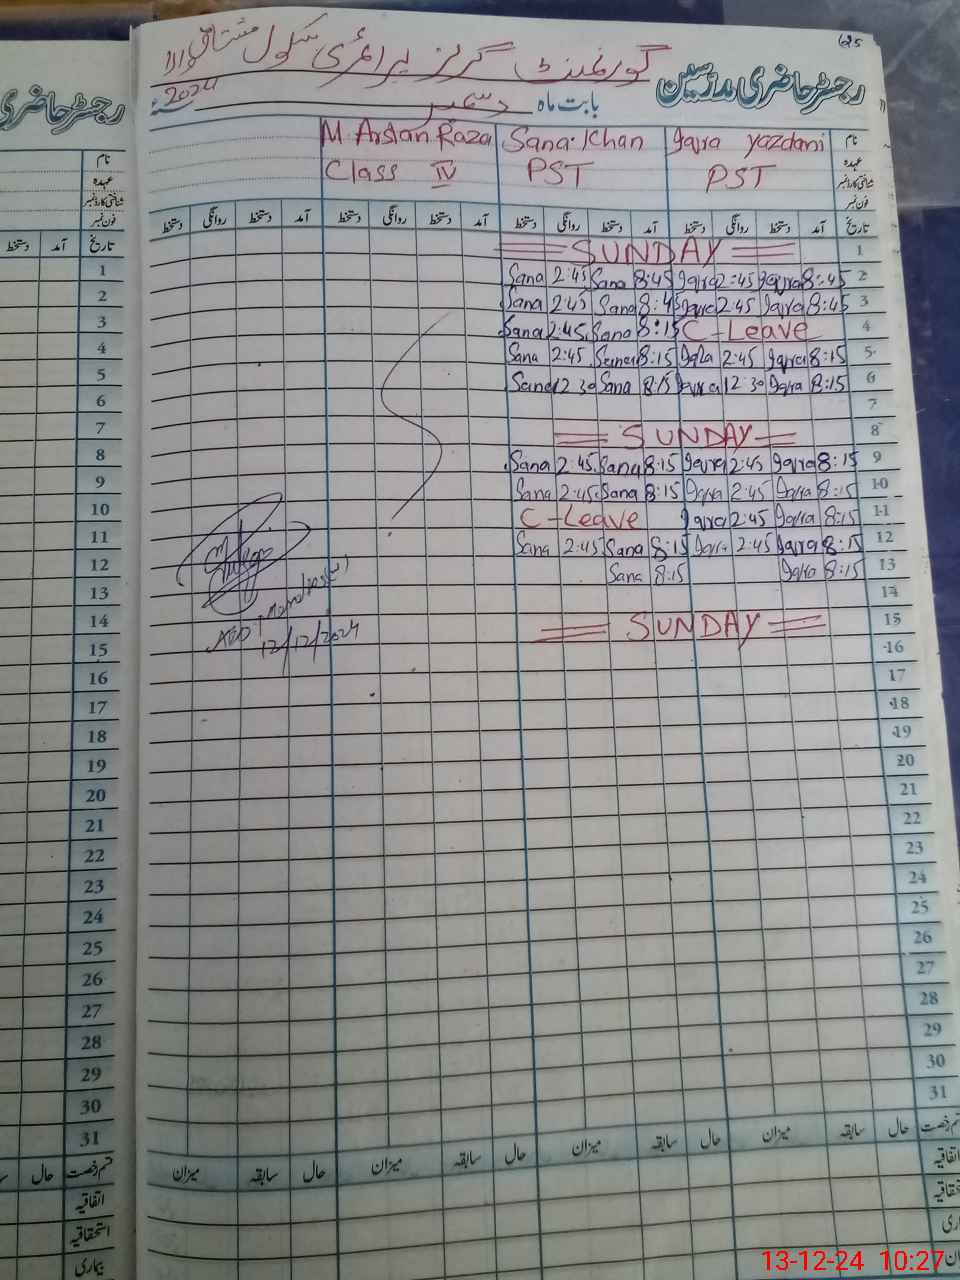 گورنمنٹ گرلز پرائمری سکول مشتاق والا
رجسٹر حاضری مدرسین
بابت ماہ دسمبر 2024
نام Iqra Yazdani Sana Khan M. Arslan Raza
عہدہ PST PST Class IV
شناختی کارڈ نمبر
فون نمبر
تاریخ آمد دستخط روانگی دستخط آمد دستخط روانگی دستخط آمد دستخط روانگی دستخط آمد دستخط روانگی دستخط
SUNDAY 1
Sana 2:45 Sana 8:45 Iqra 2:45 Iqra 8:45 2
Sana 2:45 Sana 8:45 Iqra 2:45 Iqra 8:45 3
Sana 2:45 Sana 8:15 C-Leave 4
Sana 2:45 Sana 8:15 Iqra 2:45 Iqra 8:15 5
Sana 12:30 Sana 8:15 Iqra 12:30 Iqra 8:15 6
7
SUNDAY 8
Sana 2:45 Sana 8:15 Iqra 2:45 Iqra 8:15 9
Sana 2:45 Sana 8:15 Iqra 2:45 Iqra 8:15 10
C-Leave Iqra 2:45 Iqra 8:15 11
Sana 2:45 Sana 8:15 Iqra 2:45 Iqra 8:15 12
Sana 8:15 Iqra 8:15 13
14
SUNDAY 15
AEO
12/12/2024
16
17
18
19
20
21
22
23
24
25
26
27
28
29
30
31
قسم رخصت حال سابقہ میزان حال سابقہ میزان حال سابقہ میزان حال سابقہ میزان
اتفاقیہ
رجسٹر حاضری
نام
عہدہ
شناختی کارڈ نمبر
فون نمبر
تاریخ آمد دستخط
1
2
3
4
5
6
7
8
9
10
11
12
13
14
15
16
17
18
19
20
21
22
23
24
25
26
27
28
29
30
31
قسم رخصت حال
اتفاقیہ
استحقاقیہ
بیماری
13-12-24 10:27